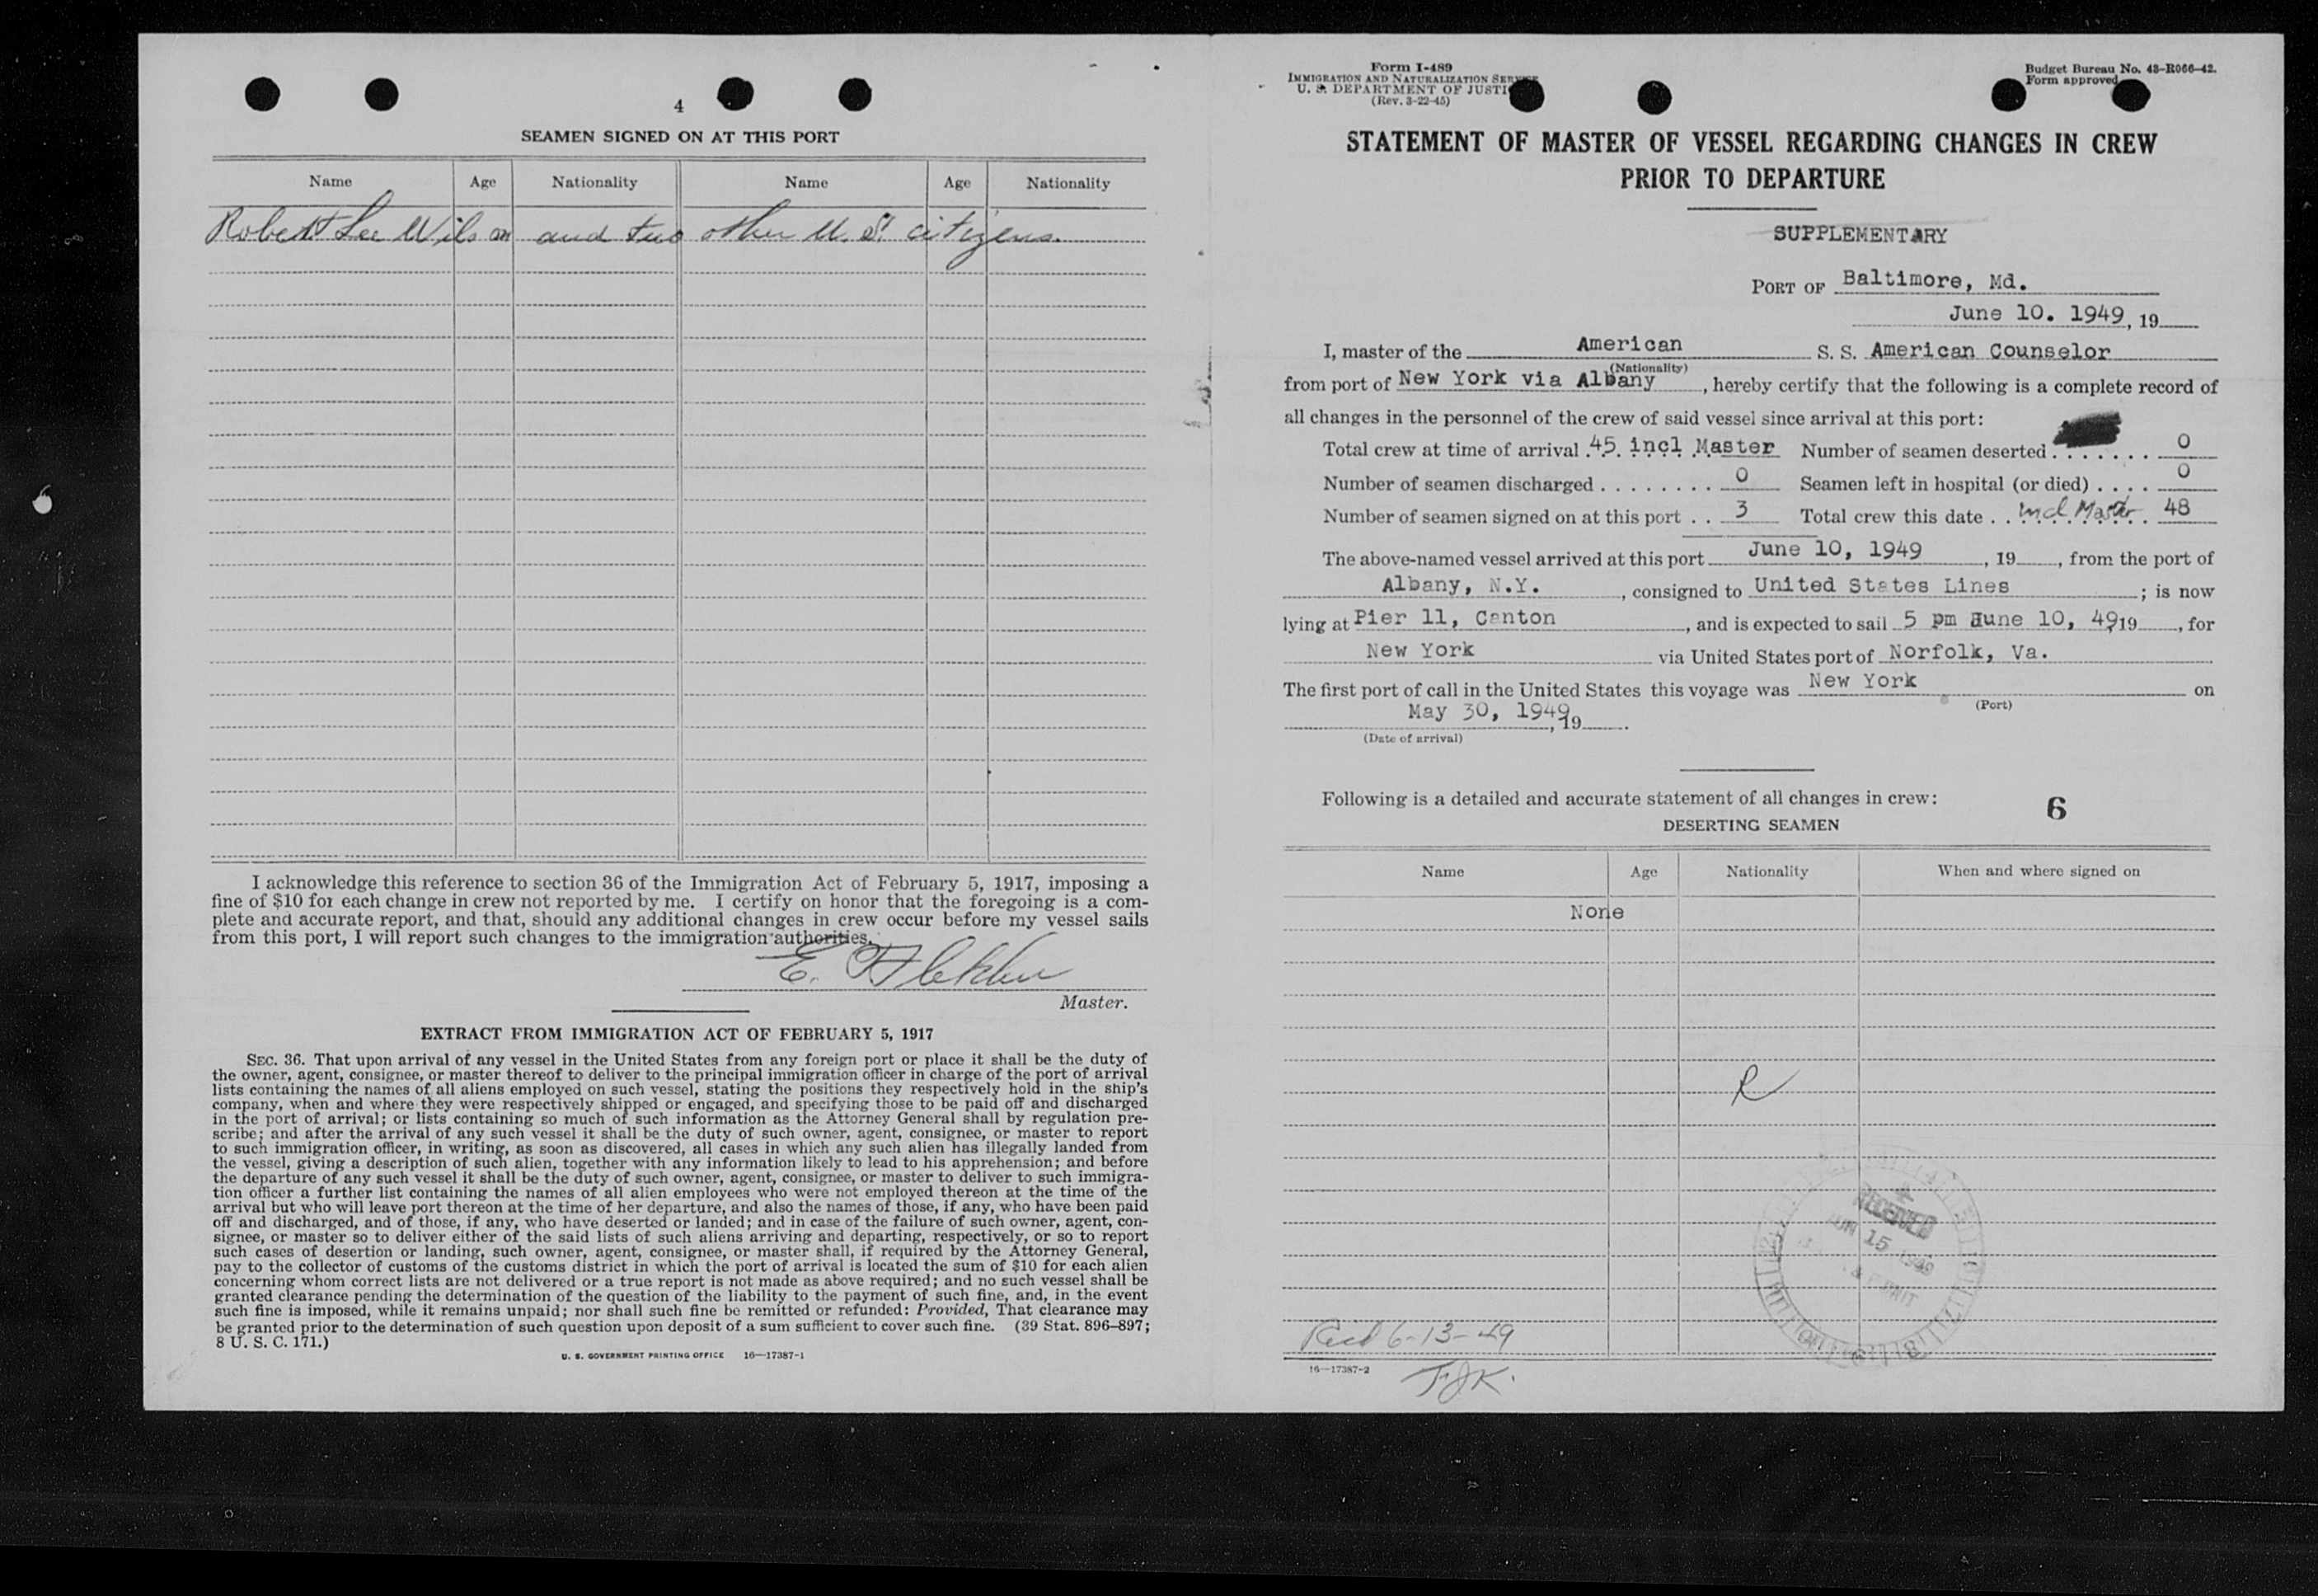 4
SEAMEN SIGNED ON AT THIS PORT
Name Age Nationality Name Age Nationality
Robert Lee Wilson and two other U.S. citizens.
I acknowledge this reference to section 36 of the Immigration Act of February 5, 1917, imposing a
fine of $10 for each change in crew not reported by me. I certify on honor that the foregoing is a com-
plete and accurate report, and that, should any additional changes in crew occur before my vessel sails
from this port, I will report such changes to the immigration authorities.
E.
Master.
EXTRACT FROM IMMIGRATION ACT OF FEBRUARY 5, 1917
SEC. 36. That upon arrival of any vessel in the United States from any foreign port or place it shall be the duty of
the owner, agent, consignee, or master thereof to deliver to the principal immigration officer in charge of the port of arrival
lists containing the names of all aliens employed on such vessel, stating the positions they respectively hold in the ship's
company, when and where they were respectively shipped or engaged, and specifying those to be paid off and discharged
in the port of arrival; or lists containing so much of such information as the Attorney General shall by regulation pre-
scribe; and after the arrival of any such vessel it shall be the duty of such owner, agent, consignee, or master to report
to such immigration officer, in writing, as soon as discovered, all cases in which any such alien has illegally landed from
the vessel, giving a description of such alien, together with any information likely to lead to his apprehension; and before
the departure of any such vessel it shall be the duty of such owner, agent, consignee, or master to deliver to such immigra-
tion officer a further list containing the names of all alien employees who were not employed thereon at the time of the
arrival but who will leave port thereon at the time of her departure, and also the names of those, if any, who have been paid
off and discharged, and of those, if any, who have deserted or landed; and in case of the failure of such owner, agent, con-
signee, or master so to deliver either of the said lists of such aliens arriving and departing, respectively, or so to report
such cases of desertion or landing, such owner, agent, consignee, or master shall, if required by the Attorney General,
pay to the collector of customs of the customs district in which the port of arrival is located the sum of $10 for each alien
concerning whom correct lists are not delivered or a true report is not made as above required; and no such vessel shall be
granted clearance pending the determination of the question of the liability to the payment of such fine, and, in the event
such fine is imposed, while it remains unpaid; nor shall such fine be remitted or refunded: Provided, That clearance may
be granted prior to the determination of such question upon deposit of a sum sufficient to cover such fine. (39 Stat. 896–897;
8 U. S. C. 171.)
U. S. GOVERNMENT PRINTING OFFICE 16—17387-1
Form I-489
IMMIGRATION AND NATURALIZATION SERVICE
U. S. DEPARTMENT OF JUSTI
(Rev. 3-22-45)
Budget Bureau No. 43–R066–42.
Form approved
STATEMENT OF MASTER OF VESSEL REGARDING CHANGES IN CREW
PRIOR TO DEPARTURE
SUPPLEMENTARY
PORT OF Baltimore, Md.
June 10. 1949, 19
I, master of the American S. S. American Counselor
(Nationality)
from port of New York via Albany, hereby certify that the following is a complete record of
all changes in the personnel of the crew of said vessel since arrival at this port:
Total crew at time of arrival 45 incl Master Number of seamen deserted 0
Number of seamen discharged 0 Seamen left in hospital (or died) 0
Number of seamen signed on at this port 3 Total crew this date incl Master 48
The above-named vessel arrived at this port June 10, 1949, 19, from the port of
Albany, N.Y., consigned to United States Lines; is now
lying at Pier 11, Canton, and is expected to sail 5 pm June 10, 49 19, for
New York via United States port of Norfolk, Va.
The first port of call in the United States this voyage was New York on
(Port)
May 30, 1949, 19.
(Date of arrival)
Following is a detailed and accurate statement of all changes in crew:
6
DESERTING SEAMEN
Name Age Nationality When and where signed on
None
R
RECEIVED
JUN 15 1949
Recd 6-13-49
16—17387-2
FJK.